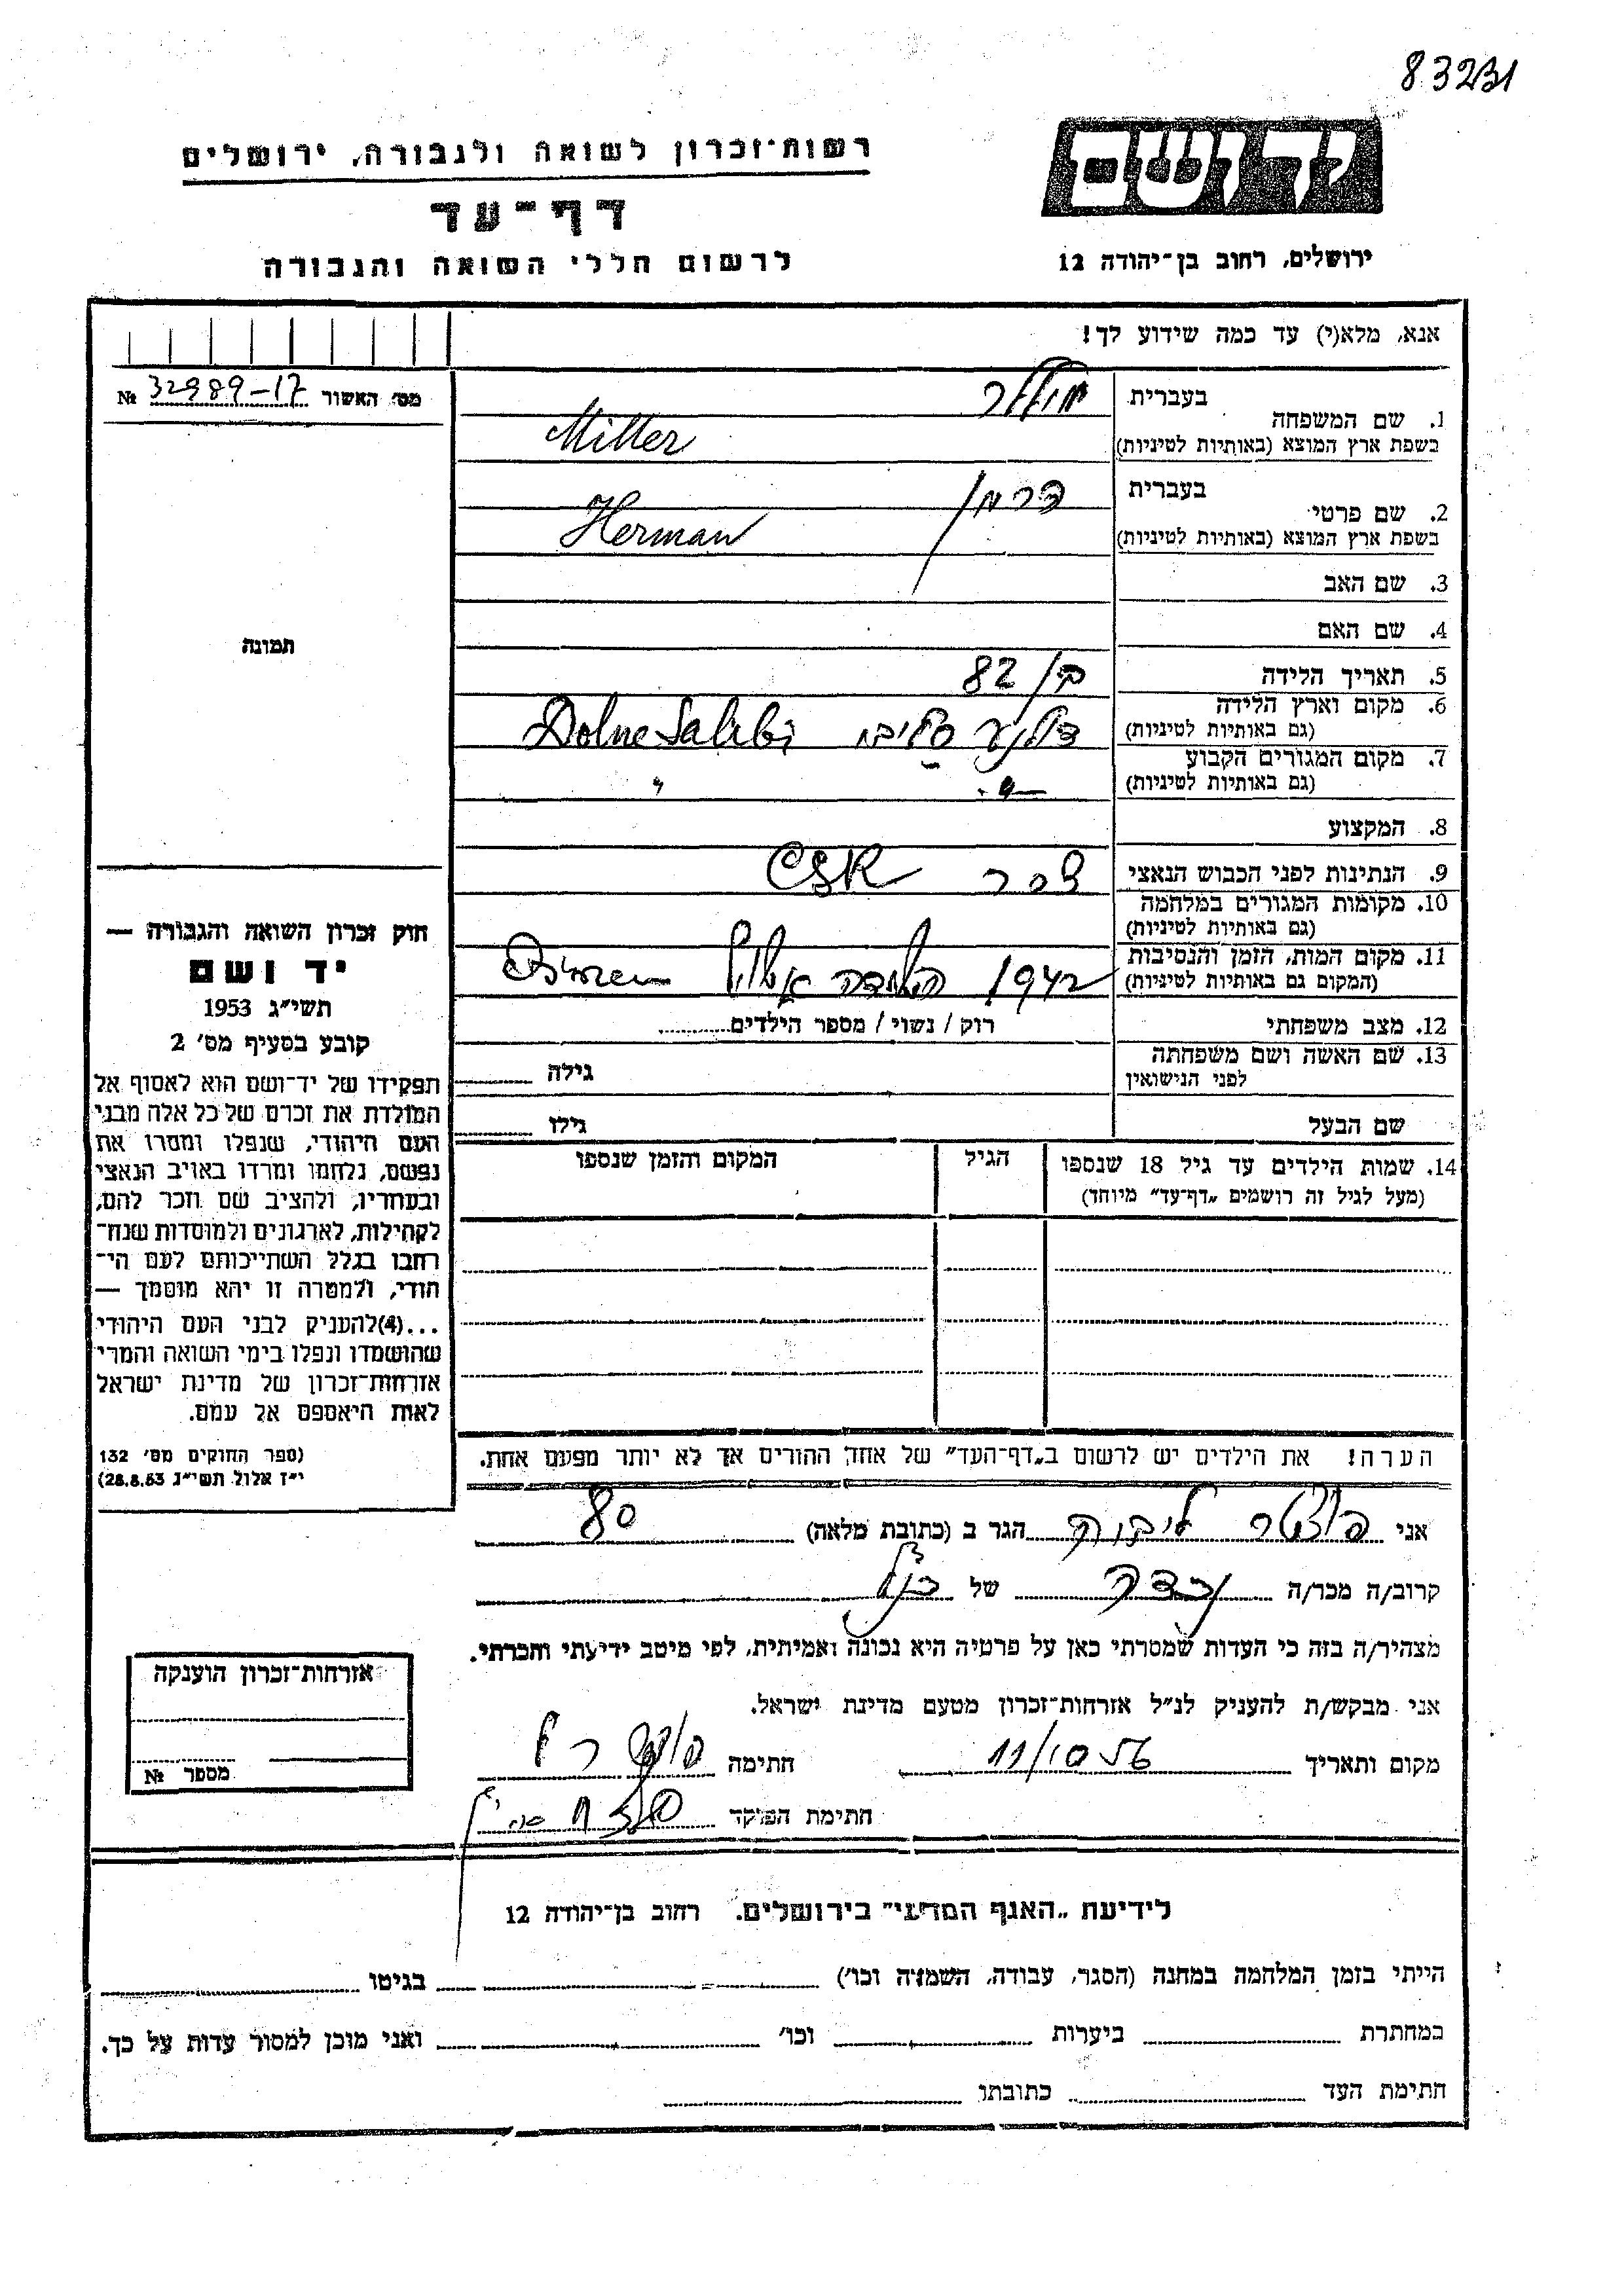 83231
רשות־זכרון לשואה ולגבורה, ירושלים
יד ושם
דף־עד
לרשום חללי השואה והגבורה
ירושלים, רחוב בן־יהודה 12
אנא, מלא(י) עד כמה שידוע לך!
מס׳ האשור 32989-17 №
בעברית
1. שם המשפחה
בשפת ארץ המוצא (באותיות לטיניות)
Miller
בעברית
2. שם פרטי
בשפת ארץ המוצא (באותיות לטיניות) Herman
3. שם האב
4. שם האם
תמונה
5. תאריך הלידה 82
6. מקום וארץ הלידה
(גם באותיות לטיניות) Dolne Salibi
7. מקום המגורים הקבוע
(גם באותיות לטיניות)
8. המקצוע
9. הנתינות לפני הכבוש הנאצי CSR
10. מקומות המגורים במלחמה
(גם באותיות לטיניות)
11. מקום המות, הזמן והנסיבות
(המקום גם באותיות לטיניות) 1942
12. מצב משפחתי רוק / נשוי / מספר הילדים
13. שם האשה ושם משפחתה
לפני הנישואין גילה
שם הבעל גילו
14. שמות הילדים עד גיל 18 שנספו הגיל המקום והזמן שנספו
(מעל לגיל זה רושמים „דף־עד״ מיוחד)
חוק זכרון השואה והגבורה —
יד ושם
תשי״ג 1953
קובע בסעיף מס׳ 2
תפקידו של יד־ושם הוא לאסוף אל
המולדת את זכרם של כל אלה מבני
העם היהודי, שנפלו ומסרו את
נפשם, נלחמו ומרדו באויב הנאצי
ובעוזריו, ולהציב שם וזכר להם,
לקהילות, לארגונים ולמוסדות שנח־
רחבו בגלל השתייכותם לעם הי־
הודי, ולמטרה זו יהא מוסמך —
...(4)להעניק לבני העם היהודי
שהושמדו ונפלו בימי השואה והמרי
אזרחות־זכרון של מדינת ישראל
לאות היאספם אל עמם.
(ספר החוקים מס׳ 132
י״ז אלול תשי״ג 28.8.53)
הערה! את הילדים יש לרשום ב„דף־העד״ של אחד ההורים אך לא יותר מפעם אחת.
אני הגר ב (כתובת מלאה) 80
קרוב/ה מכר/ה נכדה של
מצהיר/ה בזה כי העדות שמסרתי כאן על פרטיה היא נכונה ואמיתית, לפי מיטב ידיעתי והכרתי.
אני מבקש/ת להעניק לנ״ל אזרחות־זכרון מטעם מדינת ישראל.
מקום ותאריך 11/10 56 חתימה
חתימת הפוקד
אזרחות־זכרון הוענקה
מספר №
לידיעת „האגף המדעי״ בירושלים. רחוב בן־יהודה 12
הייתי בזמן המלחמה במחנה (הסגר, עבודה, השמדה וכו׳) בגיטו
במחתרת ביערות וכו׳ ואני מוכן למסור עדות על כך.
חתימת העד כתובתו